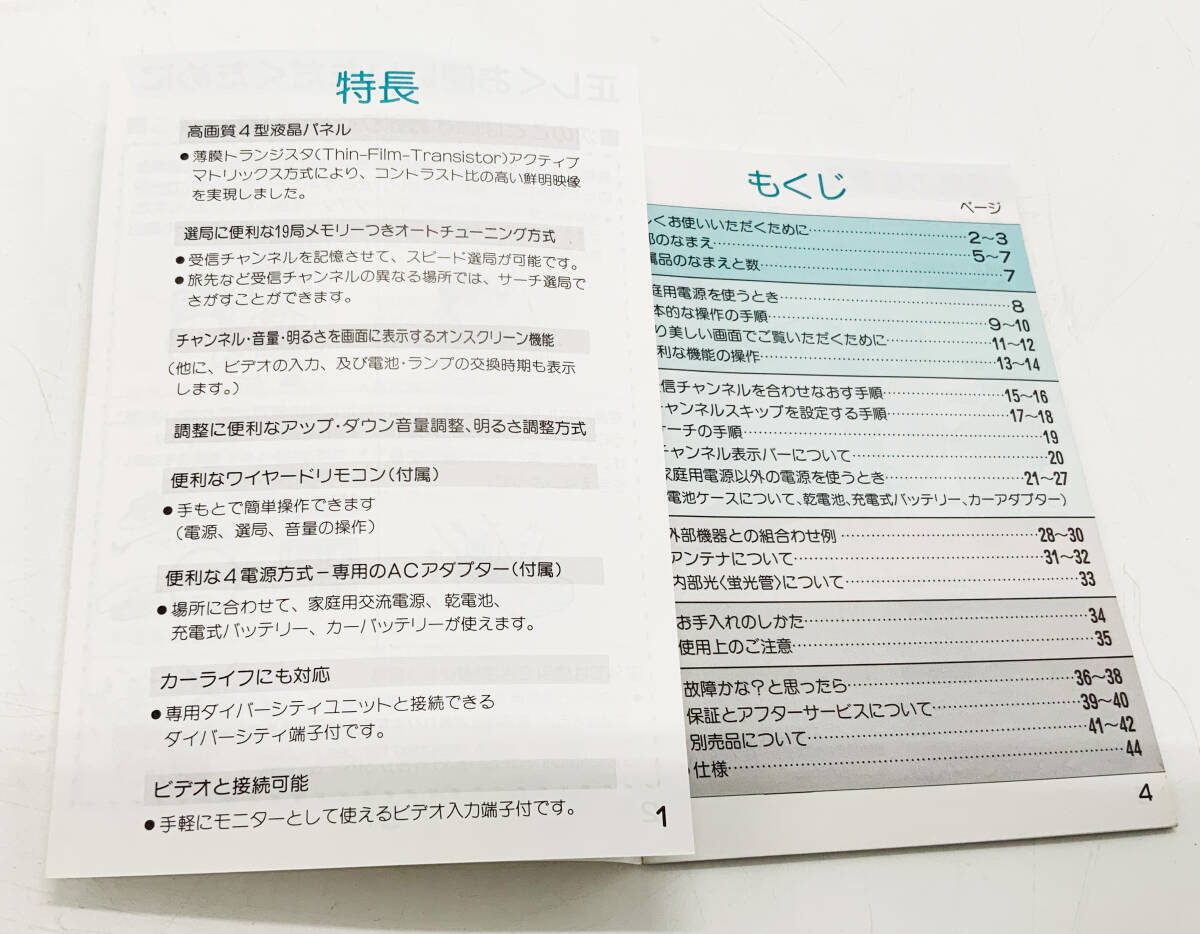 特長
高画質4型液晶パネル
●薄膜トランジスタ(Thin-Film-Transistor)アクティブ
マトリックス方式により、コントラスト比の高い鮮明映像
を実現しました。
選局に便利な19局メモリーつきオートチューニング方式
●受信チャンネルを記憶させて、スピード選局が可能です。
●旅先など受信チャンネルの異なる場所では、サーチ選局で
さがすことができます。
チャンネル・音量・明るさを画面に表示するオンスクリーン機能
(他に、ビデオの入力、及び電池・ランプの交換時期も表示
します。)
調整に便利なアップ・ダウン音量調整、明るさ調整方式
便利なワイヤードリモコン(付属)
●手もとで簡単操作できます
(電源、選局、音量の操作)
便利な4電源方式-専用のACアダプター(付属)
●場所に合わせて、家庭用交流電源、乾電池、
充電式バッテリー、カーバッテリーが使えます。
カーライフにも対応
●専用ダイバーシティユニットと接続できる
ダイバーシティ端子付です。
ビデオと接続可能
●手軽にモニターとして使えるビデオ入力端子付です。
1
もくじ
ページ
くお使いいただくために 2~3
のなまえ 5~7
属品のなまえと数 7
庭用電源を使うとき 8
本的な操作の手順 9~10
り美しい画面でご覧いただくために 11~12
利な機能の操作 13~14
信チャンネルを合わせなおす手順 15~16
チャンネルスキップを設定する手順 17~18
サーチの手順 19
チャンネル表示バーについて 20
家庭用電源以外の電源を使うとき 21~27
電池ケースについて、乾電池、充電式バッテリー、カーアダプター)
外部機器との組合わせ例 28~30
アンテナについて 31~32
内部光〈蛍光管〉について 33
お手入れのしかた 34
使用上のご注意 35
故障かな?と思ったら 36~38
保証とアフターサービスについて 39~40
別売品について 41~42
仕様 44
4